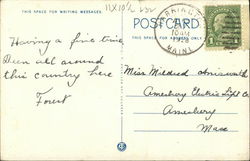 THIS SPACE FOR WRITING MESSAGES
POSTCARD
THIS SPACE FOR ADDRESS ONLY
MAINE
1
Having a fine time
Been all around
this country here
Forest
Miss Mildred
Amesbury Electric Light Co
Amesbury
Mass